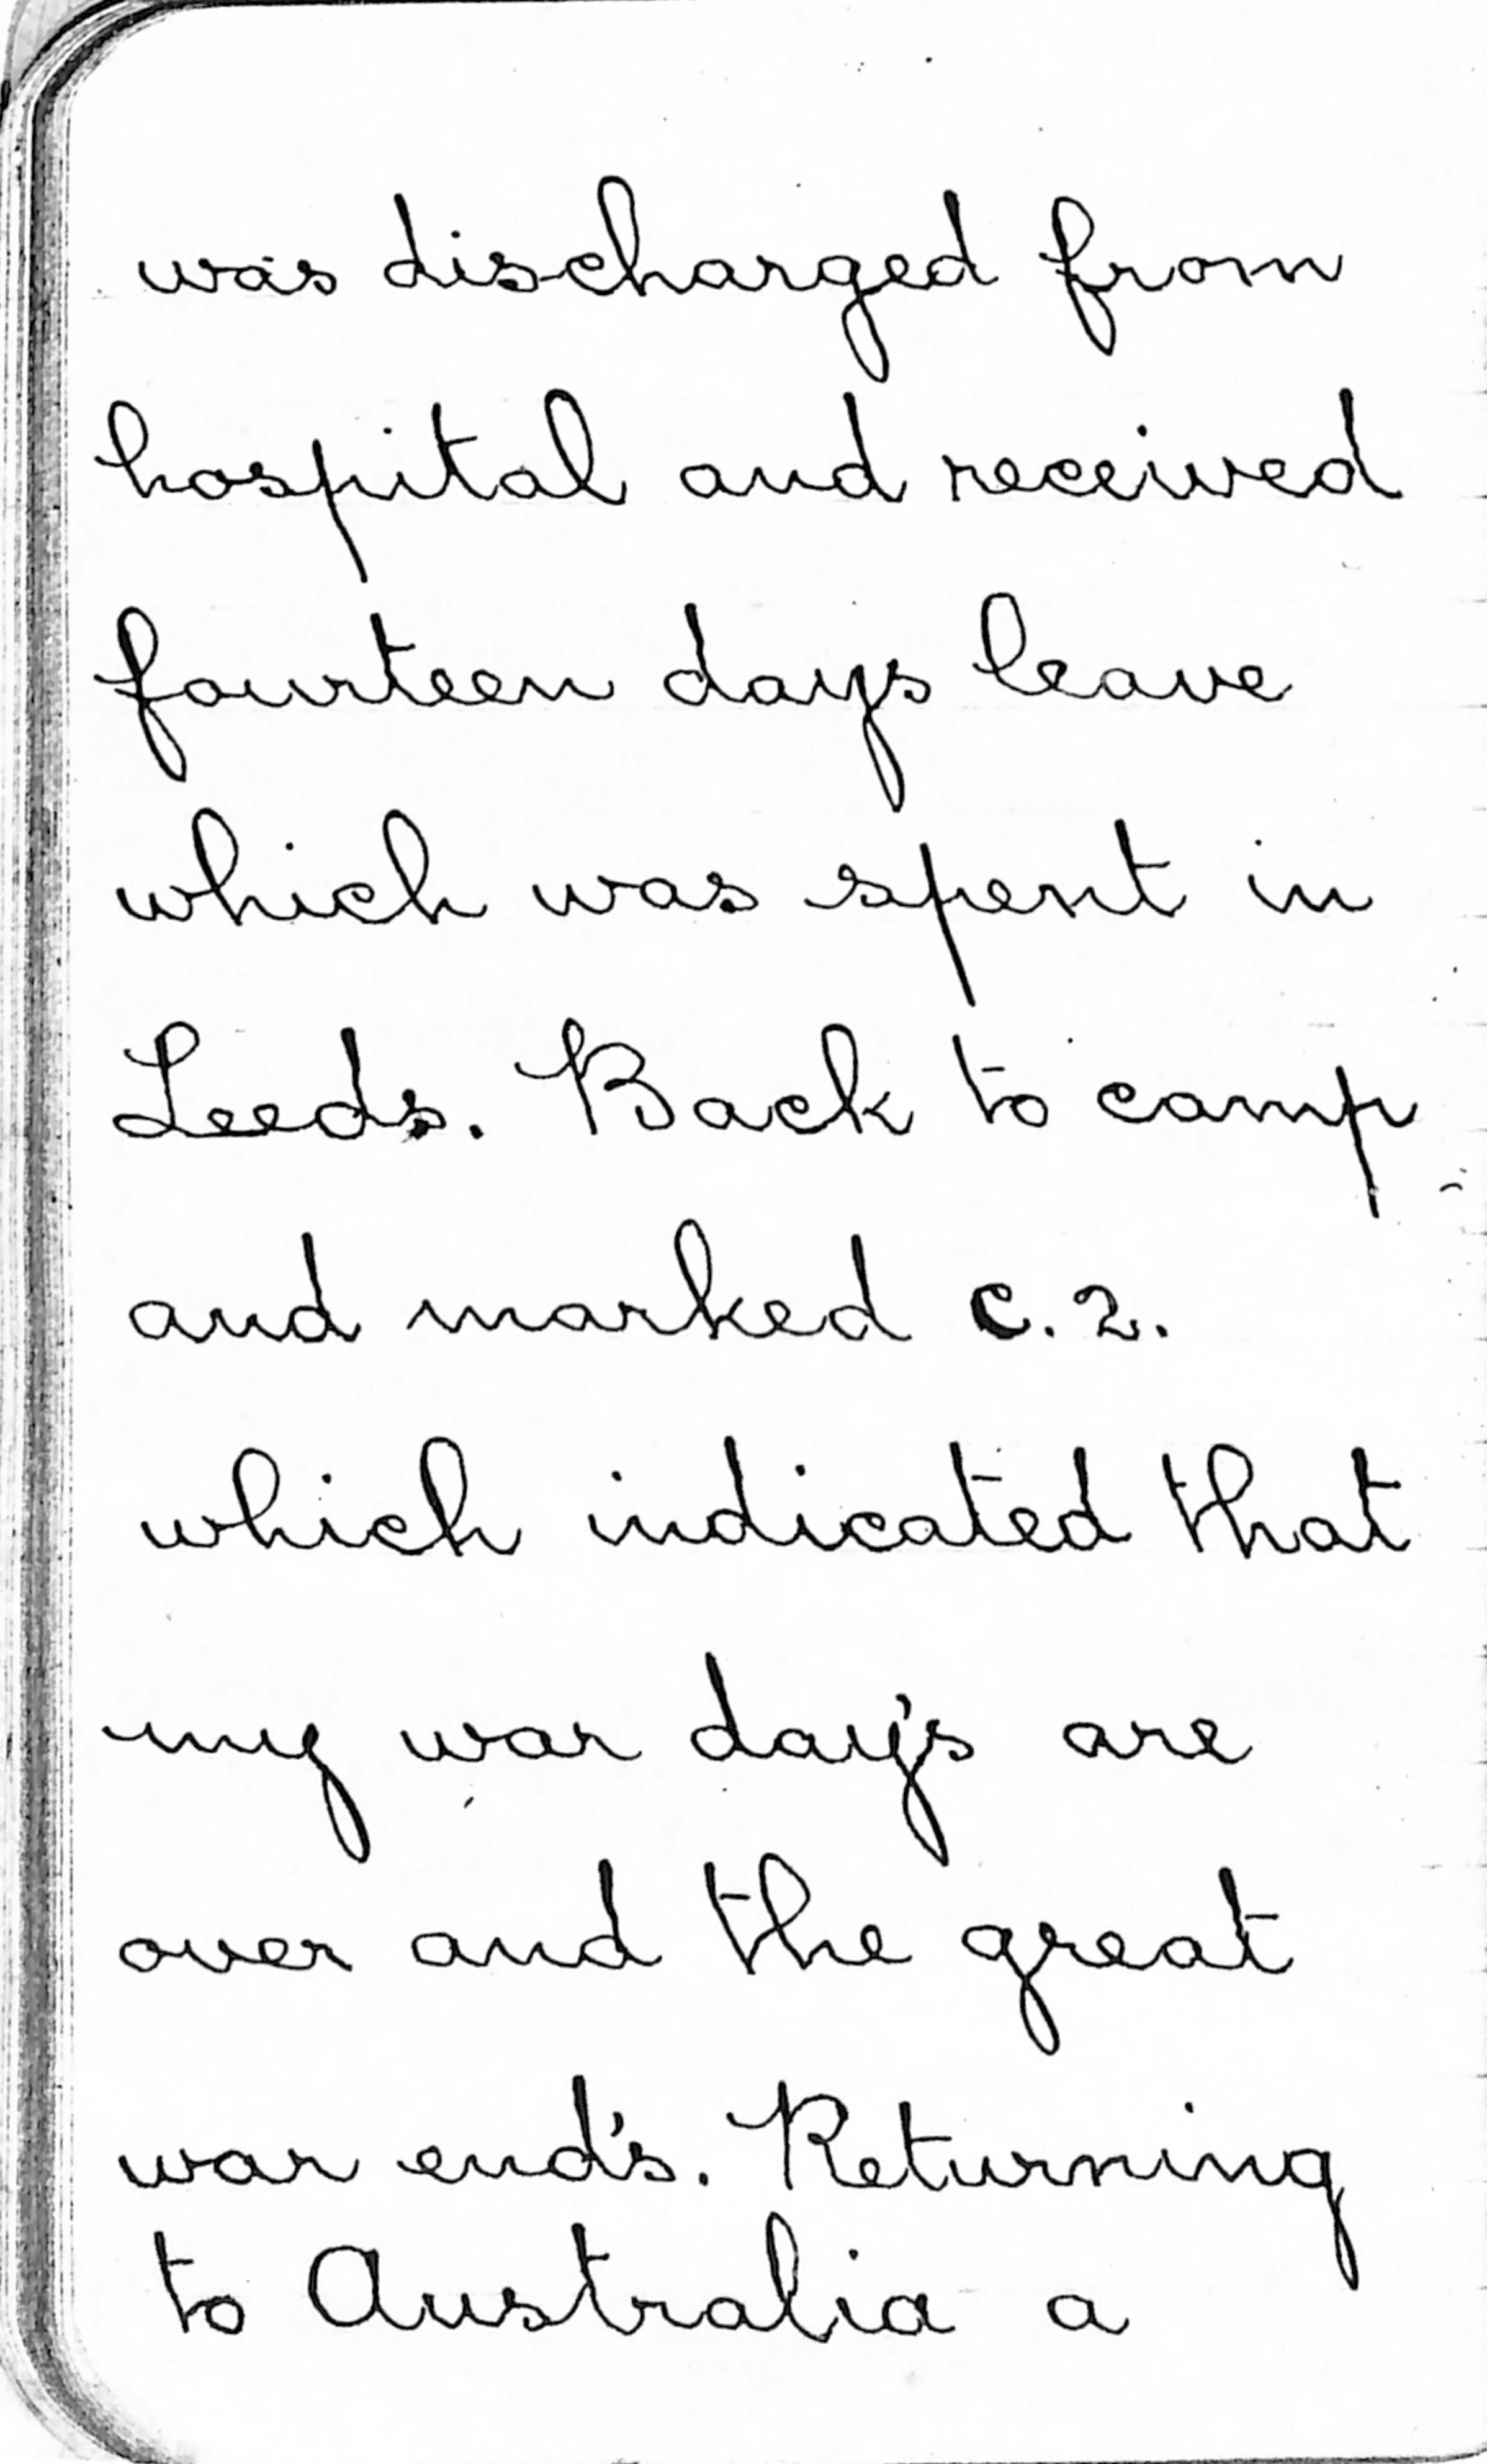 was discharged from
hospital and received
fourteen days leave
which was spent in
Leeds. Back to camp
and marked c.2.
which indicated that
my war day's are
over and the great
war end's. Returning
to Australia a